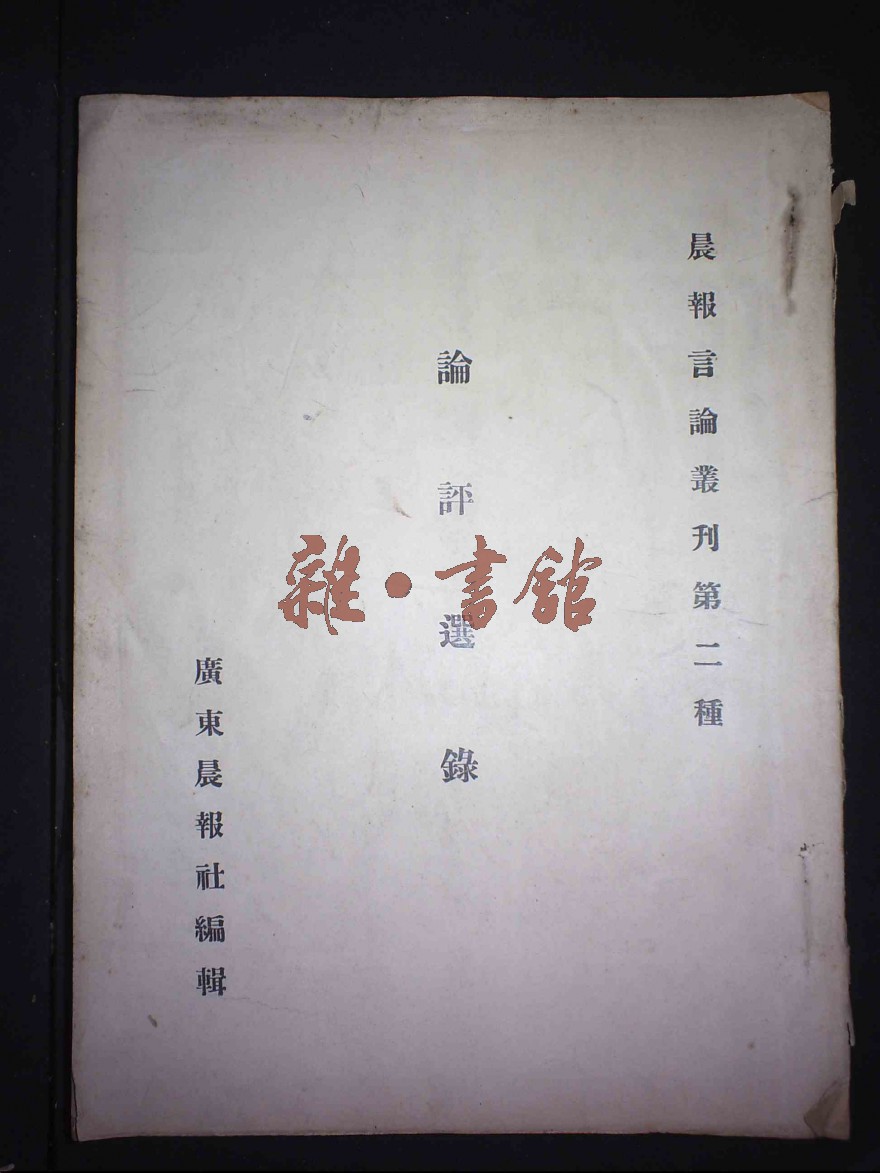 晨報言論叢刊第二種
論評選錄
廣東晨報社編輯
雜·書館